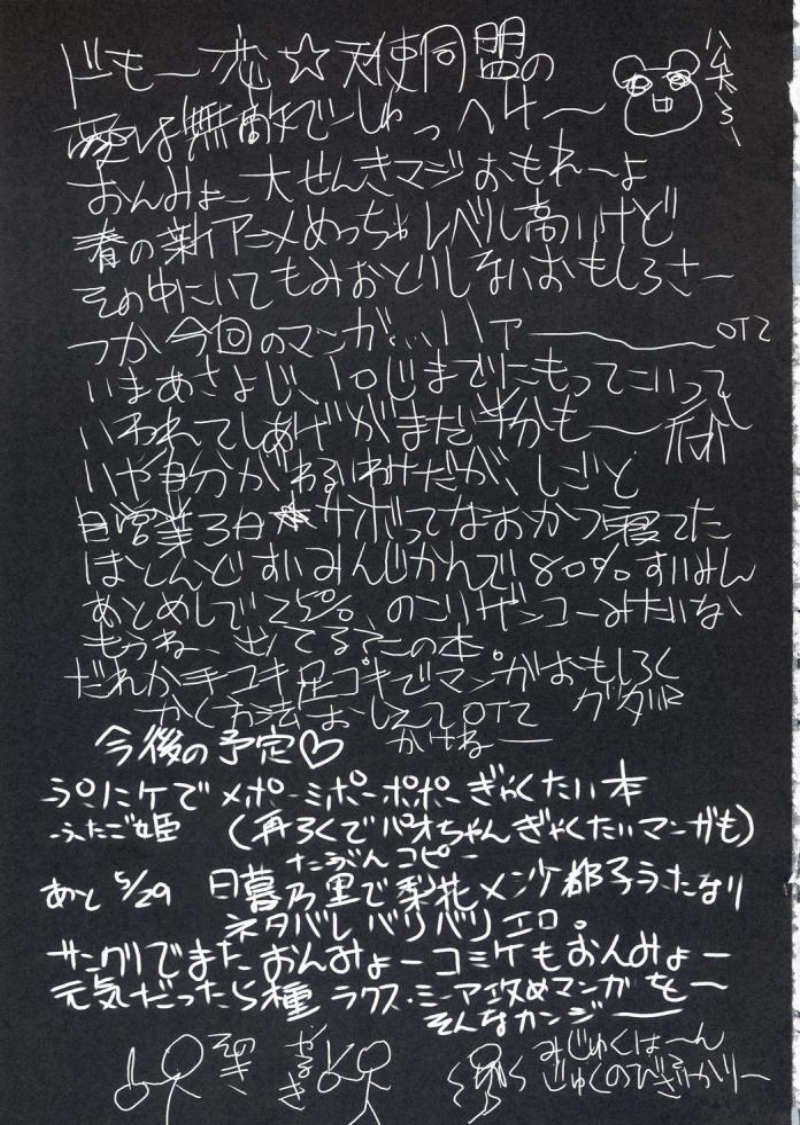 ドもー恋☆天使同盟の
愛は無敵でーしゅっ へけ〜
おんみょー大せんきマジおもれーよ
春の新アニメめっちゃレベル高いけど
その中にいてもみおとりしないおもしろさー
つか今回のマンガ、、、ハァーーー OTZ
いまあさ じ、10じまでにもってこいって
いわれてしあげがまだ半分も〜
いや自分がわるいわけだが、しごと
自営業3日 サボってなおかつ寝てた
ほとんどすいみんじかんで80%すいみん
あとめしで25%、のこりザンコーみたいな
もうね、出てる?この本。
だれか手コキ足コキでマンガおもしろく
かく方法おしえてOTZ グダグダ
かけねー
今後の予定♡
ぷにケでメポーミポーポポーぎゃくたい本
ふたご姫 (再ろくでパオちゃんぎゃくたいマンガも)
たぶんコピー
あと5/29 日暮乃里で梨花メンツ都子うたなり
ネタバレバリバリエロ。
サンクリでまたおんみょーコミケもおんみょー
元気だったら種 ラクス・ミーア攻めマンガを〜
そんなカンジー
やるき
みじゅくはーん
じゅくのびざかりー